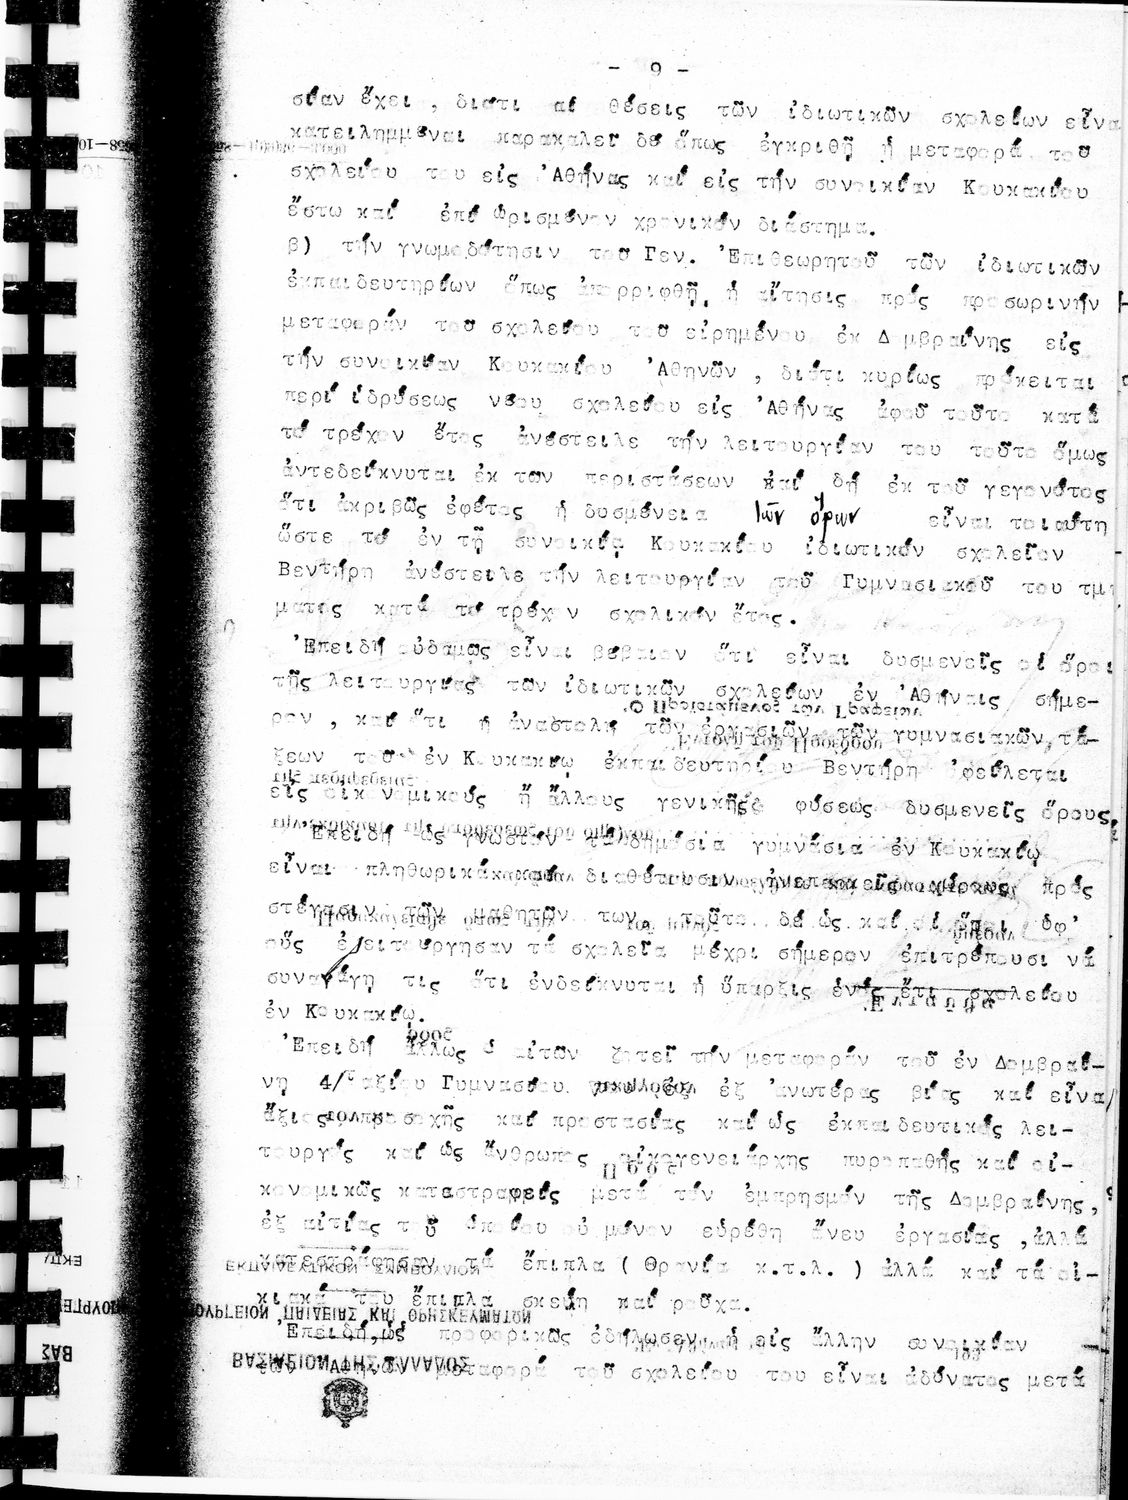 - 9 -
σίαν ἔχει , διότι αἱ θέσεις τῶν ἰδιωτικῶν σχολείων εἶναι
κατειλημμέναι παρακαλεῖ δέ ὅπως ἐγκριθῇ ἡ μεταφορά τοῦ
σχολείου του εἰς Ἀθήνας καί εἰς τήν συνοικίαν Κουκακίου
ἔστω καί ἐπί ὡρισμένον χρονικόν διάστημα.
β) τήν γνωμοδότησιν τοῦ Γεν. Ἐπιθεωρητοῦ τῶν ἰδιωτικῶν
ἐκπαιδευτηρίων ὅπως ἀπορριφθῇ, ἡ αἴτησις πρός προσωρινήν
μεταφοράν τοῦ σχολείου τοῦ εἰρημένου ἐκ Δ μβραίνης εἰς
τήν συνοικίαν Κουκακίου Ἀθηνῶν , διότι κυρίως πρόκειται
περί ἱδρύσεως νέου σχολείου εἰς Ἀθήνας ἀφοῦ τοῦτο κατά
τό τρέχον ἔτος ἀνέστειλε τήν λειτουργίαν του τοῦτο ὅμως
ἀντεδείκνυται ἐκ των περιστάσεων καί δή ἐκ τοῦ γεγονότος
ὅτι ἀκριβῶς ἐφέτος ἡ δυσμένεια τῶν ὅρων εἶναι τοιαύτη
ὥστε τό ἐν τῇ συνοικίᾳ Κουκακίου ἰδιωτικόν σχολεῖον
Βεντήρη ἀνέστειλε τήν λειτουργίαν τοῦ Γυμνασιακοῦ του τμή
ματος κατά τό τρέχον σχολικόν ἔτος.
Ἐπειδή οὐδαμῶς εἶναι βέβαιον ὅτι εἶναι δυσμενεῖς οἱ ὅροι
τῆς λειτουργίας τῶν ἰδιωτικῶν σχολείων ἐν Ἀθήναις σήμε-
ρον , καί ὅτι ἡ ἀναστολή τῶν ἐργασιῶν τῶν γυμνασιακῶν τά-
ξεων τοῦ ἐν Κουκακίῳ ἐκπαιδευτηρίου Βεντήρη ὀφείλεται
εἰς οἰκονομικούς ἤ ἄλλους γενικῆς φύσεως δυσμενεῖς ὅρους.
Ἐπειδή ὡς γνωστόν τά δημόσια γυμνάσια ἐν Κουκακίῳ
εἶναι πληθωρικά καί διαθέτουσιν ἀνεπαρκεῖς χώρους πρός
στέγασιν τῶν μαθητῶν των τοῦτο δέ ὡς καί οἱ ὅροι ὑφ'
οὕς ἐλειτούργησαν τά σχολεῖα μέχρι σήμερον ἐπιτρέπουσι νά
συναγάγῃ τις ὅτι ἐνδείκνυται ἡ ὕπαρξις ἑνός ἔτι σχολείου
ἐν Κουκακίῳ.
Ἐπειδή ἄλλως ὁ αἰτῶν ζητεῖ τήν μεταφοράν τοῦ ἐν Δομβραί-
νῃ 4/ταξίου Γυμνασίου ἐξ ἀνωτέρας βίας καί εἶναι
ἄξιος προσοχῆς καί προστασίας καί ὡς ἐκπαιδευτικός λει-
τουργός καί ὡς ἄνθρωπος οἰκογενειάρχης πυροπαθής καί οἰ-
κονομικῶς καταστραφείς μετά τόν ἐμπρησμόν τῆς Δομβραίνης,
ἐξ αἰτίας τοῦ ὁποίου οὐ μόνον εὑρέθη ἄνευ ἐργασίας ,ἀλλά
κατεστράφησαν τά ἔπιπλα ( θρανία κ.τ.λ. ) ἀλλά καί τά οἰ-
κιακά του ἔπιπλα σκεύη καί ροῦχα.
Ἐπειδή,ὡς προφορικῶς ἐδήλωσεν ἡ εἰς ἄλλην συνοικίαν
τῶν Ἀθηνῶν μεταφορά τοῦ σχολείου του εἶναι ἀδύνατος μετά
ΕΚΠΑΙΔΕΥΤΙΚΟΝ ΣΥΜΒΟΥΛΙΟΝ
ΥΠΟΥΡΓΕΙΟΝ ΠΑΙΔΕΙΑΣ ΚΑΙ ΘΡΗΣΚΕΥΜΑΤΩΝ
ΒΑΣΙΛΕΙΟΝ ΤΗΣ ΕΛΛΑΔΟΣ